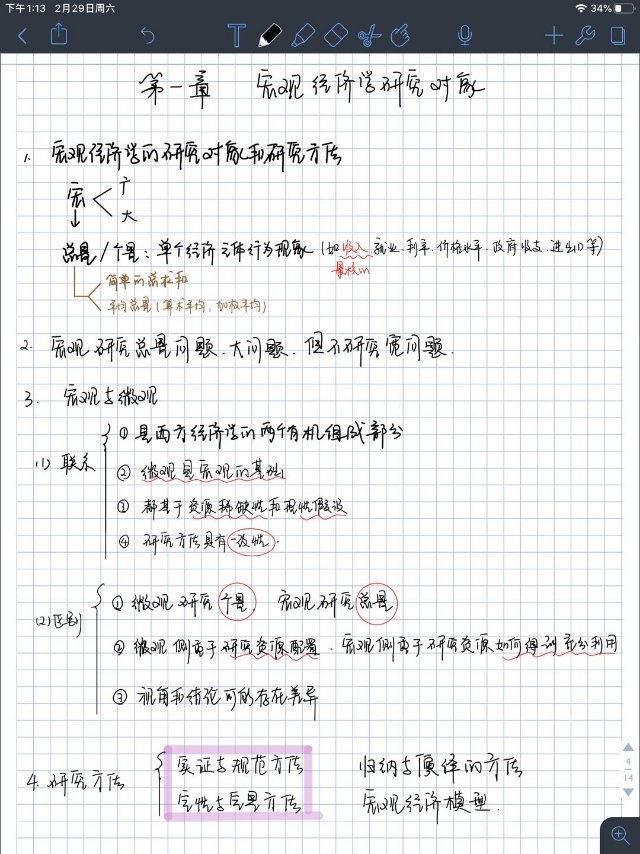 下午1:13 2月29日周六
34%
第一章 宏观经济学研究对象
1. 宏观经济学的研究对象和研究方法
宏 广
大
总量/个量：单个经济主体行为现象（如收入.就业.利率.价格水平.政府收支.进出口等）
最核心
简单的总和
平均总量（算术平均，加权平均）
2. 宏观研究总量问题.大问题.但不研究宽问题.
3. 宏观与微观
①是西方经济学的两个有机组成部分
(1)联系
②微观是宏观的基础
③都基于资源稀缺性和理性假设
④研究方法具有一致性.
①微观研究个量, 宏观研究总量
(2)区别
②微观侧重于研究资源配置.宏观侧重于研究资源如何得到充分利用
③视角和结论可能存在差异
实证与规范方法 归纳与演绎的方法
4.研究方法
定性与定量方法 宏观经济模型.
4
14